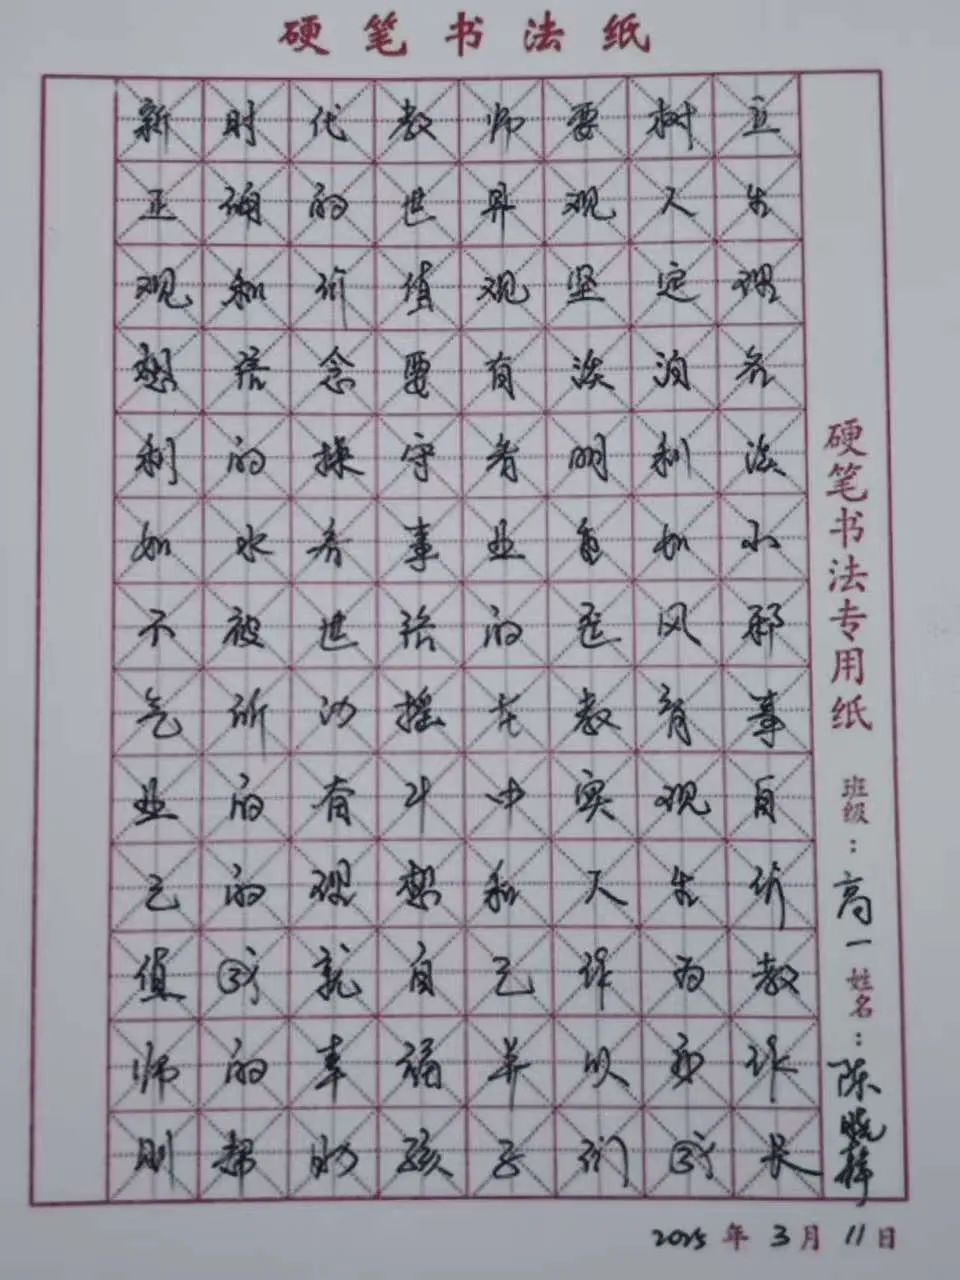 硬笔书法纸
新时代教师要树立
正确的世界观人生
观和价值观坚定理
想信念要有淡泊名
利的操守看明利淡
如水看事业重如山
不被世俗的歪风邪
气所动摇在教育事
业的奋斗中实现自
己的理想和人生价
值成就自己作为教
师的幸福并以身作
则帮助孩子们成长
硬笔书法专用纸 班级：高一 姓名：陈晓
2025年3月11日